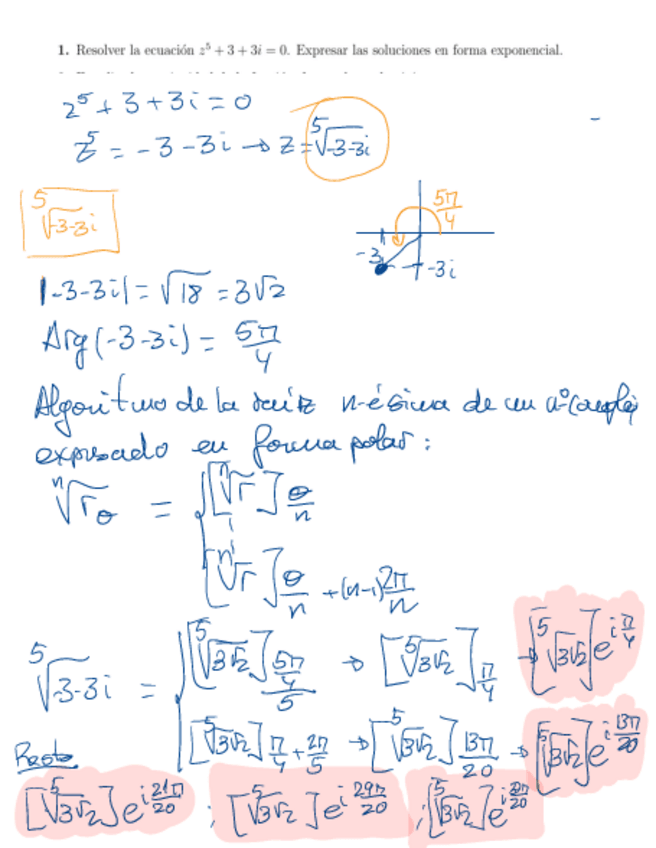 1. Resolver la ecuación z⁵ + 3 + 3i = 0. Expresar las soluciones en forma exponencial.
z⁵ + 3 + 3i = 0
z⁵ = -3 - 3i → z = ⁵√-3-3i
⁵√-3-3i
5π/4
-3
-3i
|-3-3i| = √18 = 3√2
Arg(-3-3i) = 5π/4
Algoritmo de la raíz n-ésima de un nº complejo
expresado en forma polar:
ⁿ√r_θ = { [ⁿ√r] θ/n
[ⁿ√r] θ/n + (n-1)2π/n
⁵√-3-3i = { [⁵√3√2] (5π/4)/5 → [⁵√3√2] π/4 → [⁵√3√2] e^(i π/4)
[⁵√3√2] π/4 + 2π/5 → [⁵√3√2] 13π/20 → [⁵√3√2] e^(i 13π/20)
[⁵√3√2] e^(i 21π/20) ; [⁵√3√2] e^(i 29π/20) ;